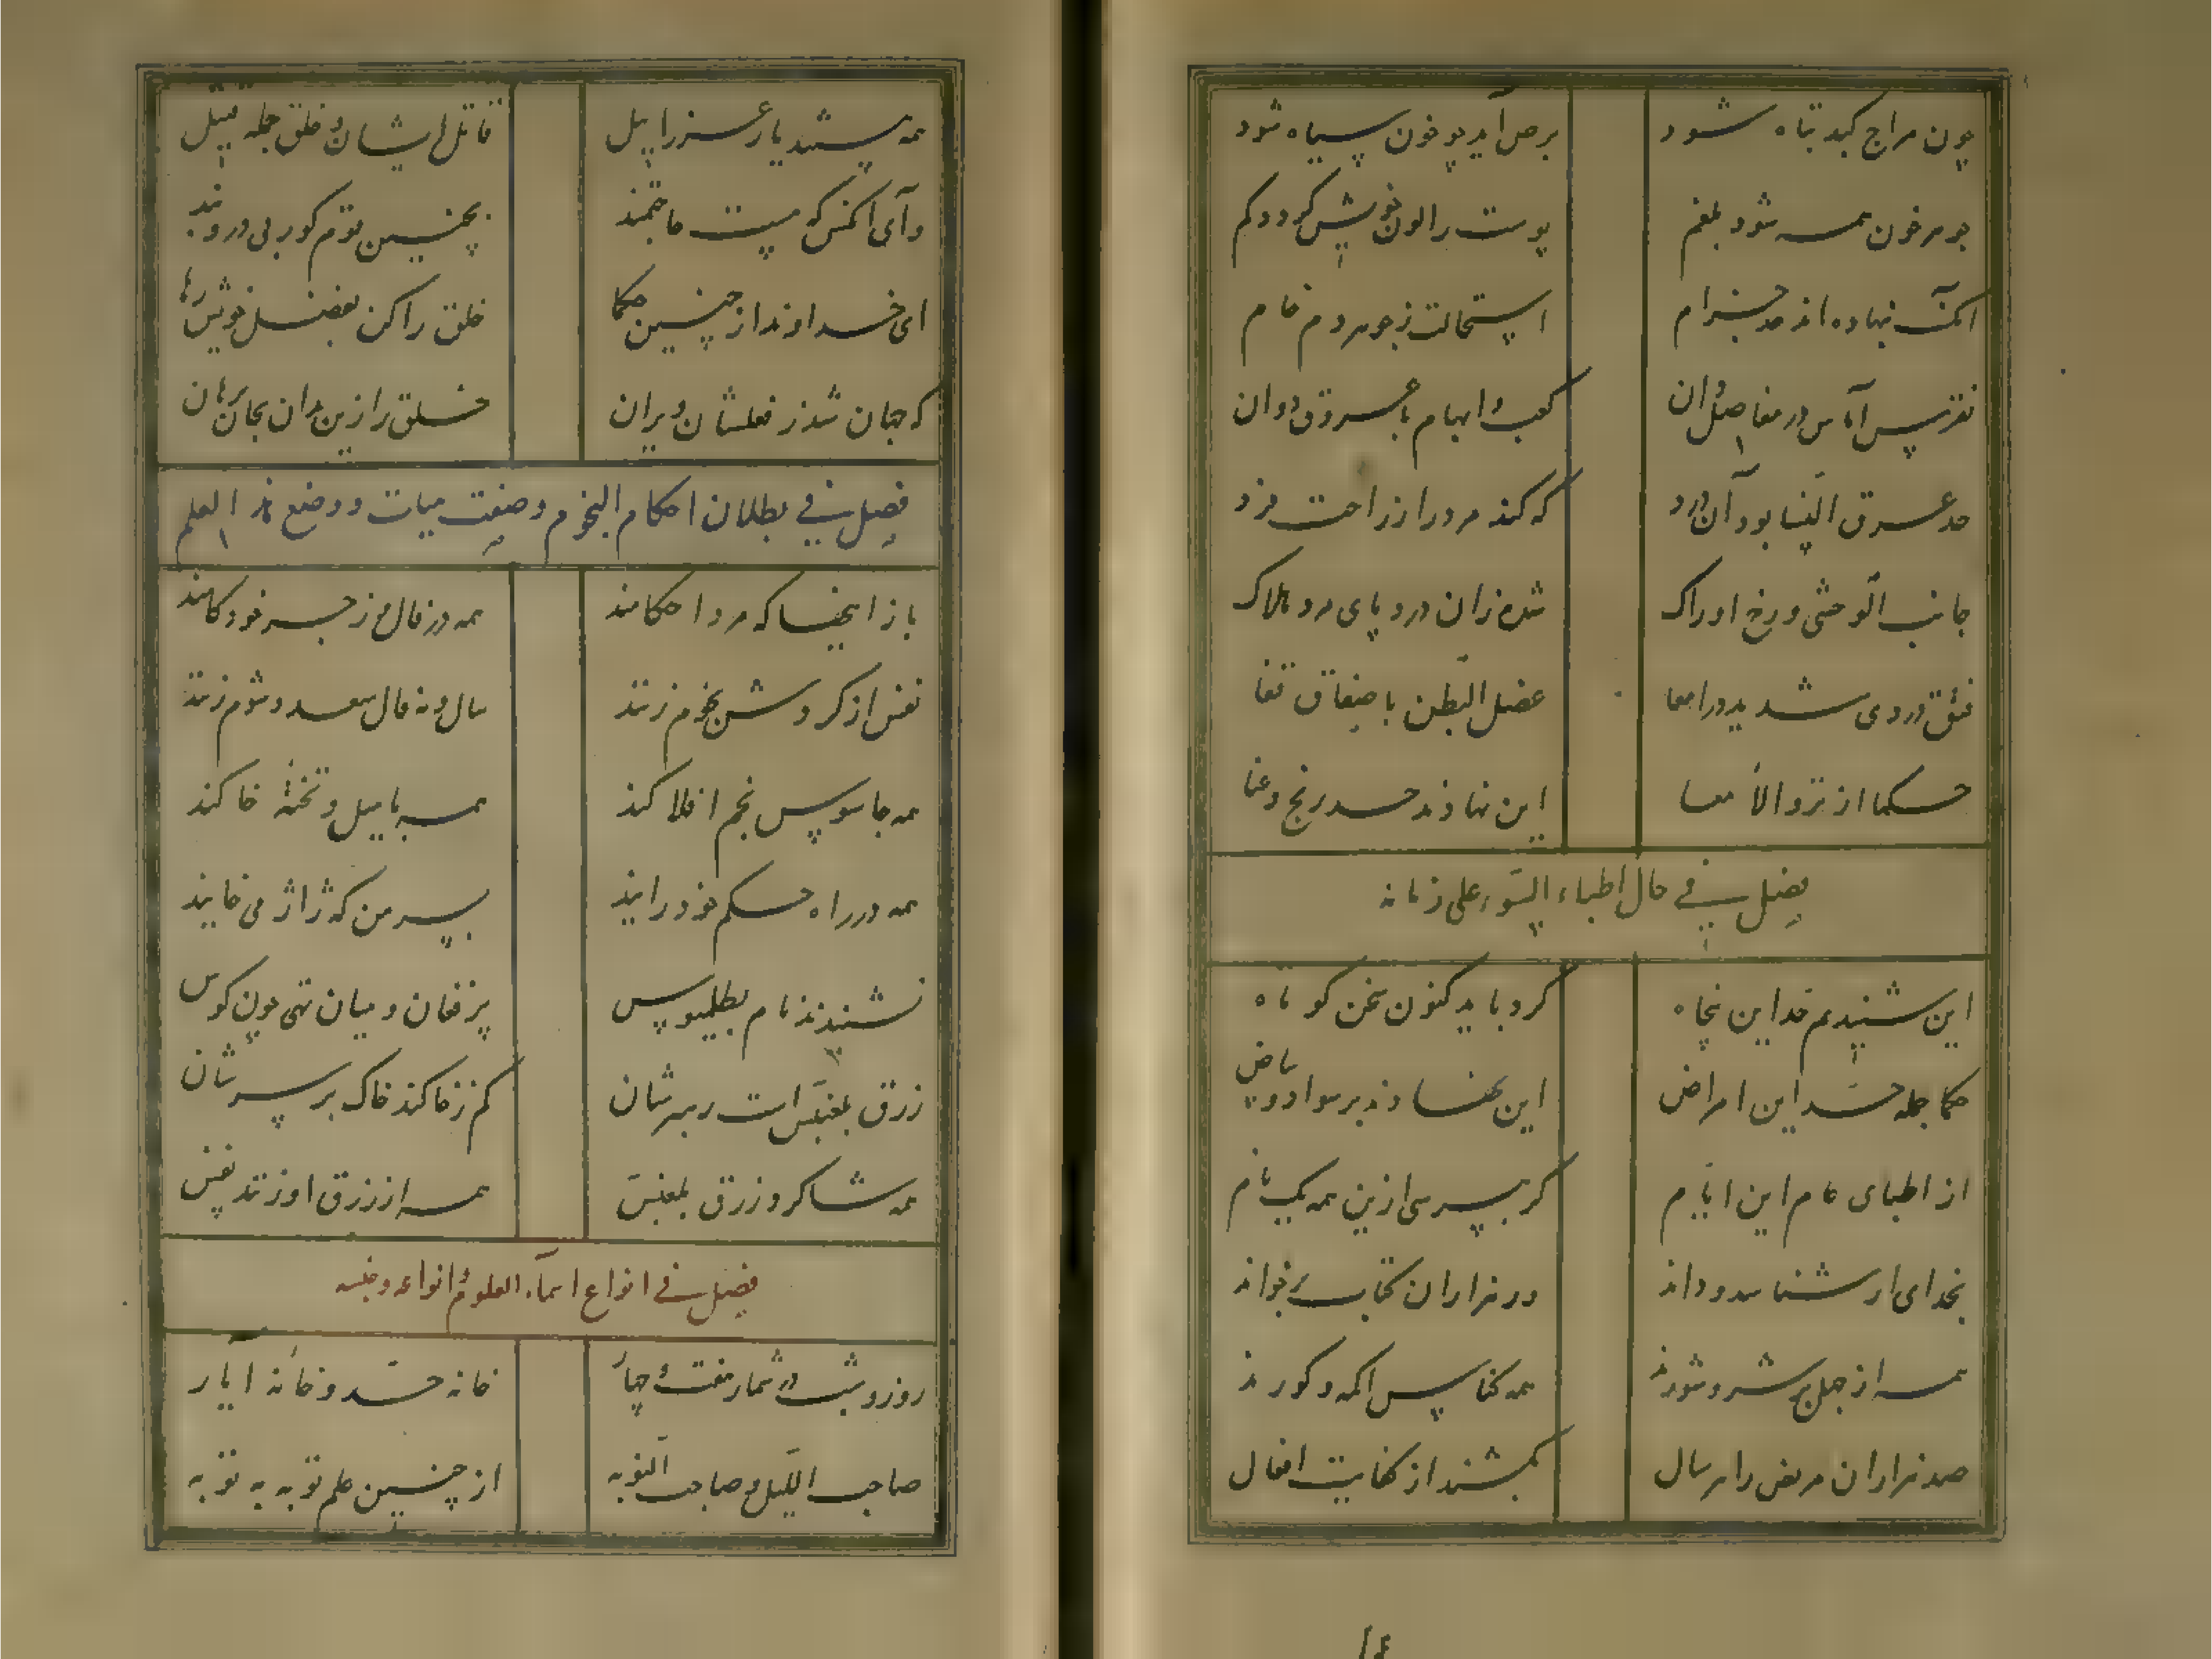 چون مزاج کبد تباه شود برص آید چو خون سیاه شود
جوهر خون همه شود بلغم پوست را لون خویش گردد کم
آنک نهاده‌اند حد جذام استحالت ز جوهر دم خام
نقرس آماس در مفاصل دان کعب و ابهام با عروق دوان
حد عرق النسا بود آن درد که کند مرد را ز راحت فرد
جانب الوحشی ورخ اوراک شده زان درد پای مرد هلاک
فتق دردی شدید در امعا عضل البطن با صفاق قفا
حکما از نزو الامعا این نهادند حد رنج و عنا
فصل فی حال اطباء السوء علی زمانه
این شنیدم خد این نجاه کرد باید کنون سخن کوتاه
حکما جمله حد این امراض این نهادند بر سواد و بیاض
از اطبای عام این ایام گر بپرسی ازین همه یک نام
بخدای ار شناسد و داند ور هزاران کتاب برخواند
همه از جهل بر شر و شورند همه کناس اکمه و کورند
صد هزاران مریض را هر سال بکشند از کفایت افعال
همه هستند یار عزرایل قاتل ایشان و خلق جمله قتیل
وآی آنکس که هست حاجتمند بچنین قوم کور بی در و بند
ای خداوند از چنین حکما خلق را کن بفضل خویش رها
که جهان شد ز فعلشان ویران خلق را زین خران بجان برهان
فصل فی بطلان احکام النجوم وصفت هیات و وضع هذ العلم
باز اینها که مرد احکامند همه در فال و زجر خود کامند
نفس از گردش نجوم زنند سال و مه فال سعد و شوم زنند
همه جاسوس نجم افلاکند همه با میل و تختهٔ خاکند
همه در راه حکم خود رایند بسر من که ژاژ می خایند
نشنیدند نام بطلمیوس پر فغان و میان تهی چون کوس
زرق بلعنبس است رهبرشان کم ز خاکند خاک بر سرشان
همه شاگرد زرق بلعنبس همه از زرق او زنند نفس
فصل فی انواع اسماء العلوم و انواعه و جنسه
روز و شب در شمار هفت و چهار خانه حد و خانه ایار
صاحب اللیل و صاحب النوبه از چنین علم توبه به توبه